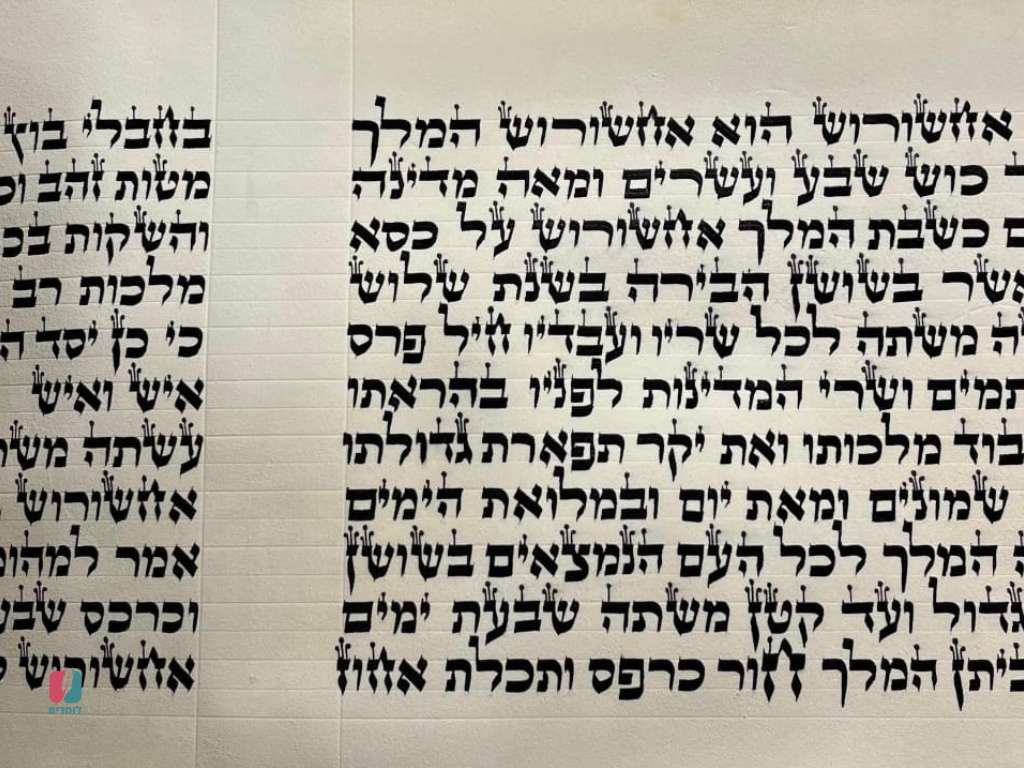 אחשורוש הוא אחשורוש המלך
כוש שבע ועשרים ומאה מדינה
ם כשבת המלך אחשורוש על כסא
אשר בשושן הבירה בשנת שלוש
ה משתה לכל שריו ועבדיו חיל פרס
תמים ושרי המדינות לפניו בהראתו
בוד מלכותו ואת יקר תפארת גדולתו
שמונים ומאת יום ובמלואת הימים
המלך לכל העם הנמצאים בשושן
גדול ועד קטן משתה שבעת ימים
ביתן המלך חור כרפס ותכלת אחוז
בחבלי בוץ
מטות זהב וכ
והשקות בכ
מלכות רב
כי כן יסד ה
איש ואיש
עשתה משת
אחשורוש
אמר למהומ
וכרכס שבע
אחשורוש
לומדים